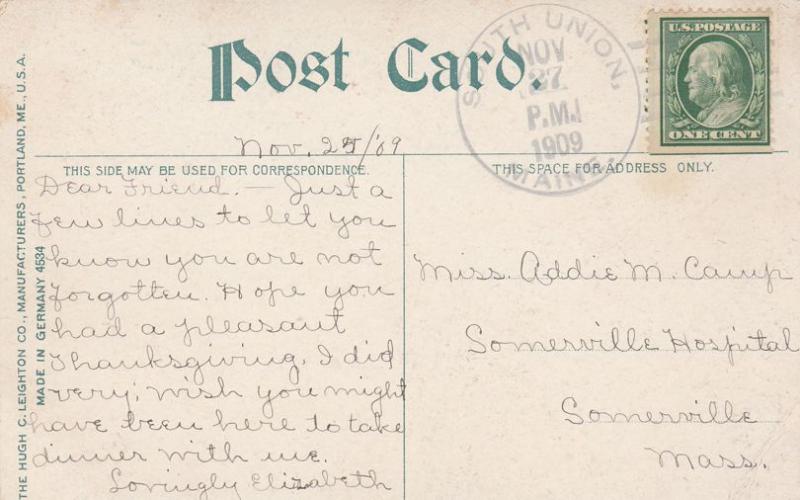 Post Card.
SOUTH UNION,
NOV
27
P.M.
1909
MAINE.
U.S. POSTAGE
ONE CENT
Nov. 25/09
THIS SIDE MAY BE USED FOR CORRESPONDENCE.
THIS SPACE FOR ADDRESS ONLY.
Dear Friend. — Just a
few lines to let you
know you are not
forgotten. Hope you
had a pleasant
Thanksgiving. I did
very; wish you might
have been here to take
dinner with me.
Lovingly Elizabeth
Miss. Addie M. Camp
Somerville Hospital
Somerville
Mass.
THE HUGH C. LEIGHTON CO., MANUFACTURERS, PORTLAND, ME., U.S.A.
MADE IN GERMANY 4534